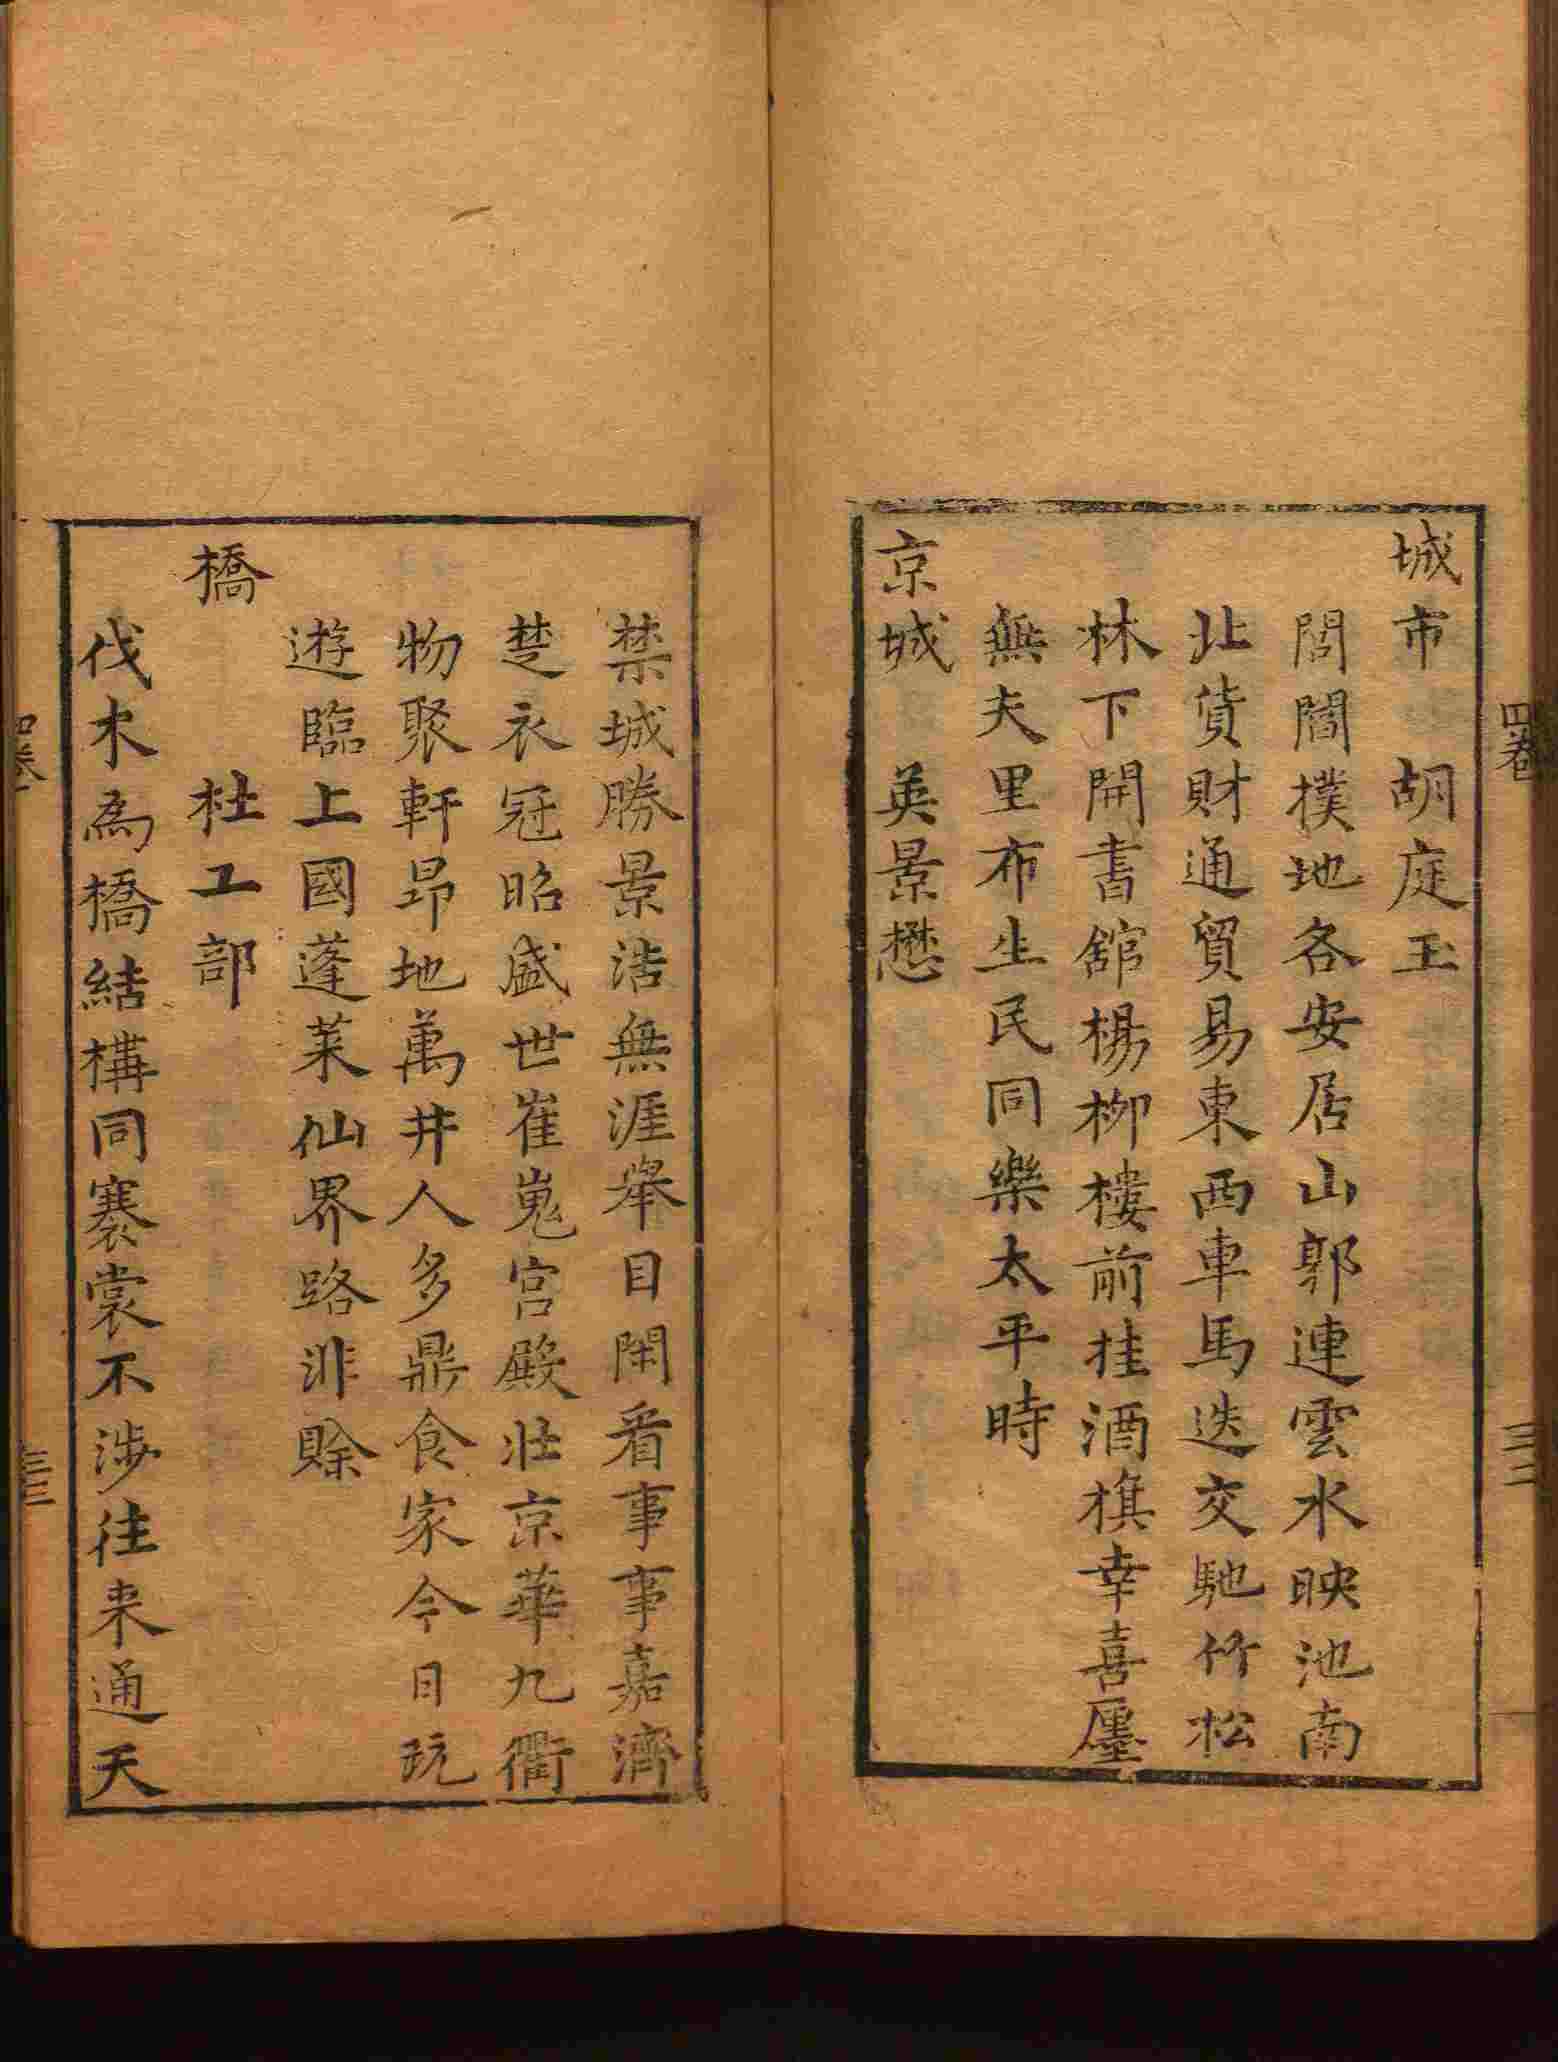 城市　胡庭玉
閭閻撲地各安居山郭連雲水映池南
北貨財通貿易東西車馬迭交馳竹松
林下開書舘楊柳樓前挂酒旗幸喜廛
無夫里布生民同樂太平時
京城　英景懋
四卷　三二
禁城勝景浩無涯舉目閑看事事嘉濟
楚衣冠昭盛世崔嵬宮殿壯京華九衢
物聚軒昂地萬井人多鼎食家今日玩
遊臨上國蓬萊仙界路非賒
橋　杜工部
伐木為橋結構同褰裳不涉往来通天
四卷　三三